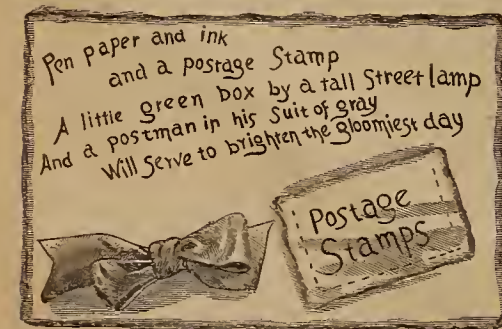 Pen paper and ink
and a postage Stamp
A little green box by a tall Street lamp
And a postman in his Suit of gray
Will Serve to brighten the gloomiest day
Postage
Stamps